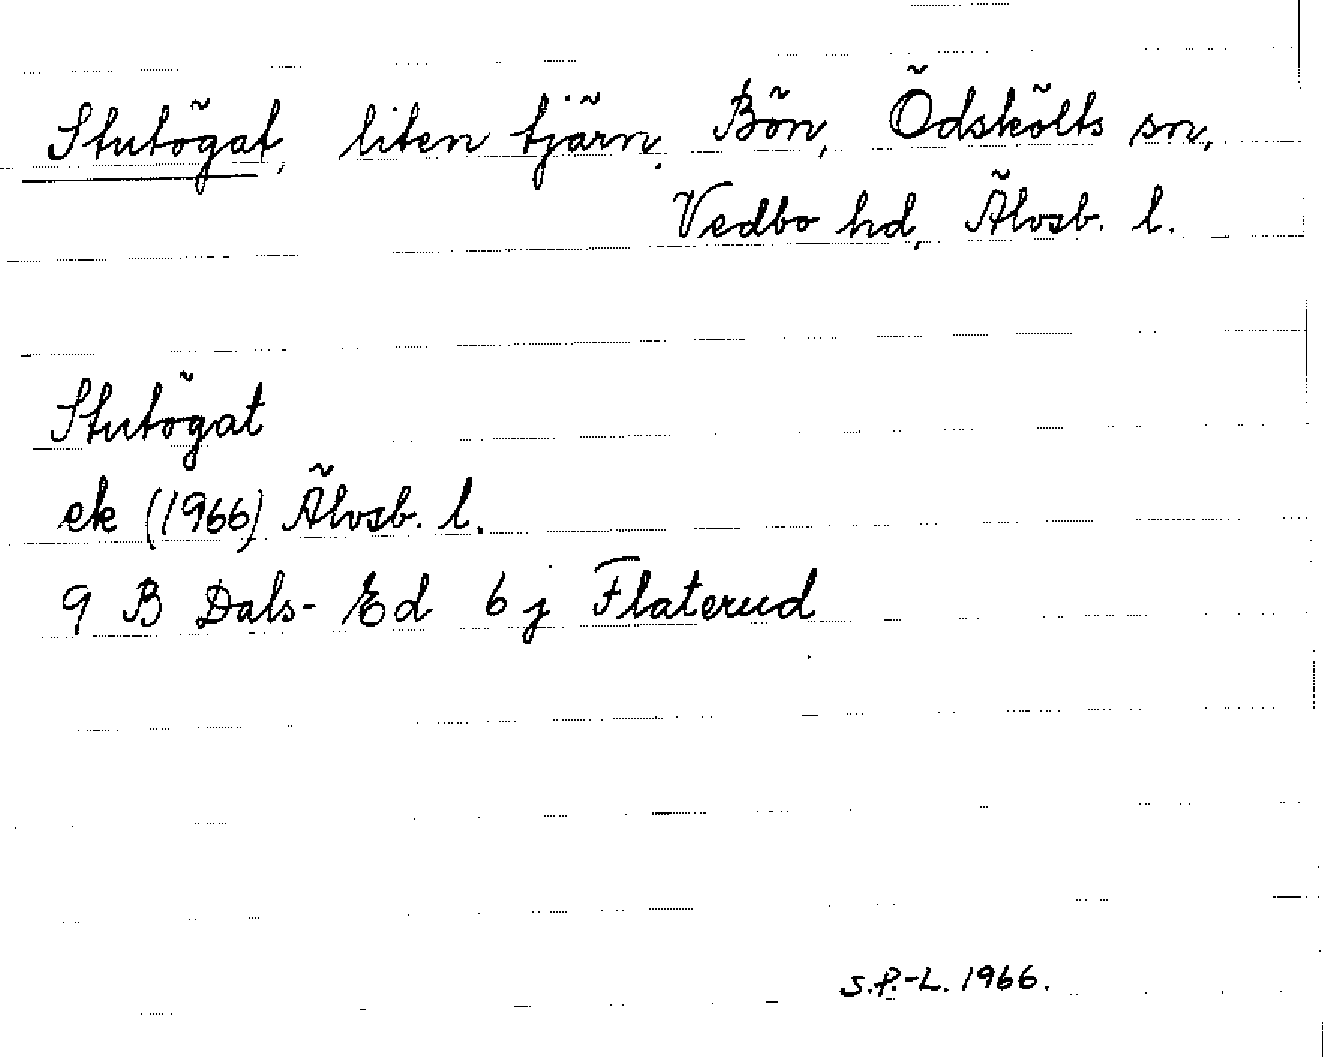 Stutögat, liten tjärn. Bön, Ödskölts sn,
Vedbo hd, Älvsb. l.
Stutögat
ek (1966) Älvsb. l.
9 B Dals-Ed 6 j Flaterud
S.P.-L. 1966.